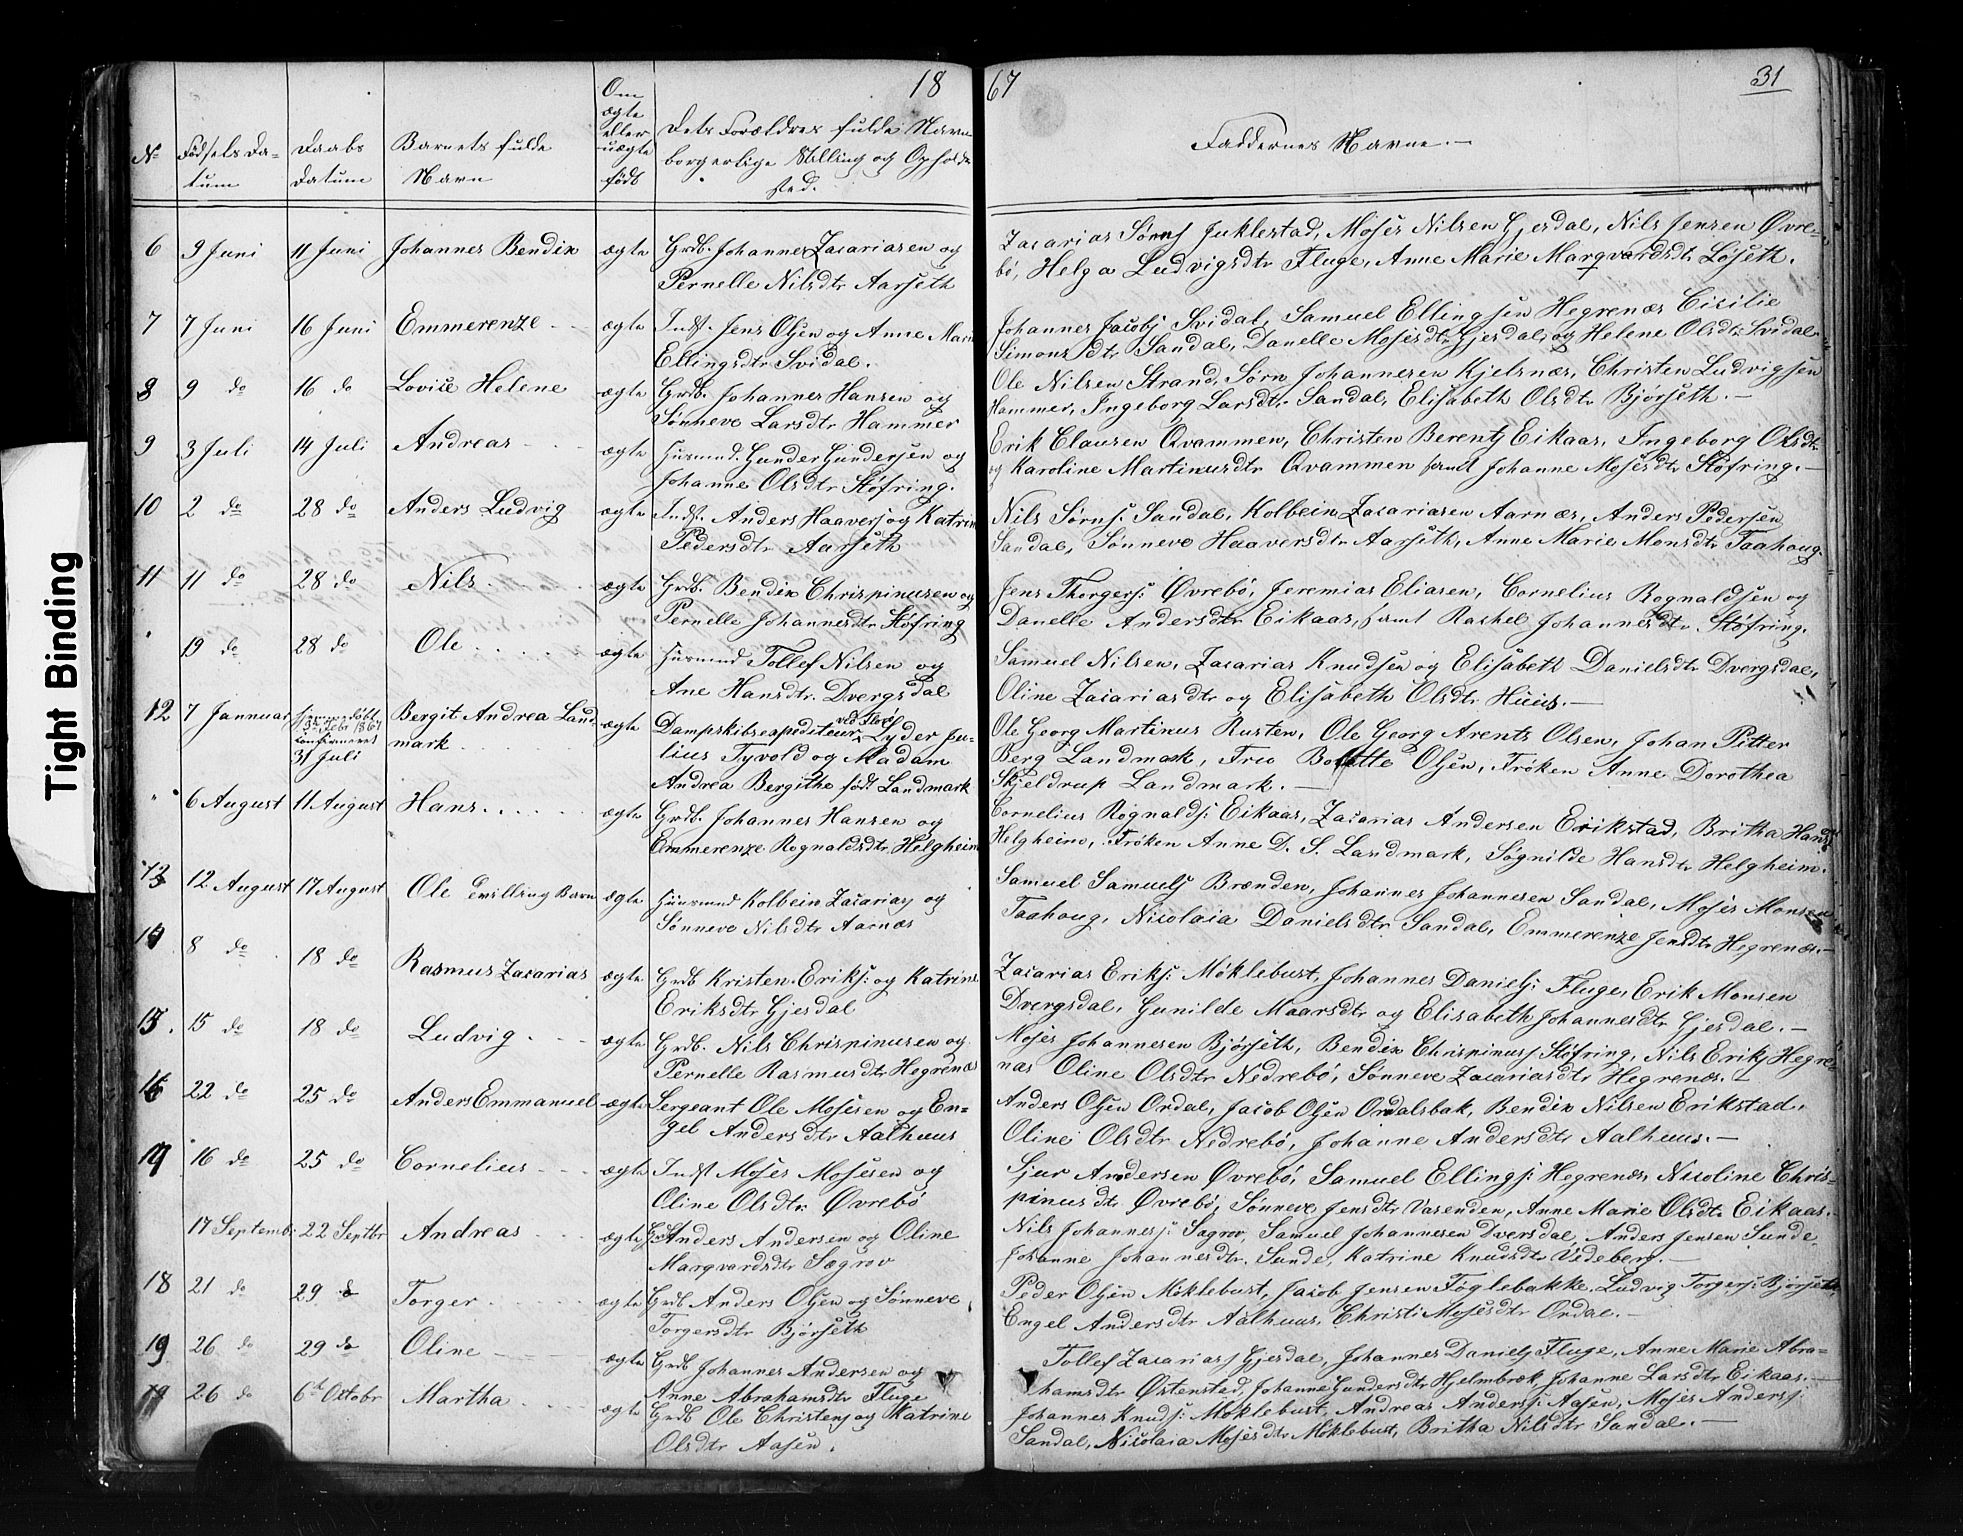 Tight Binding
18
67
31
No
Fødsels Da-
tum
Daabs
Datum
Barnets fulde
Navn
Om
ægte
eller
uægte
født
Dets Forældres fulde Navn
borgerlige Stilling og Opholds
sted.
Faddernes Navne. —
6 9 Juni 11 Juni Johannes Bendix ægte Grdb. Johannes Zacariasen og
Pernelle Nilsdtr Aarseth
Zacarias Sørens Juklestad, Moses Nilsen Gjesdal, Nils Jensen Øvre-
bø, Helga Ludvigsdtr Fluge, Anne Marie Marqvardsdtr Løseth.
7 7 Juni 16 Juni Emmerenze ægte Indst. Jens Olsen og Anne Marie
Ellingsdtr Svidal.
Johannes Jacobs Svidal, Samuel Ellingsen Hegrenæs Cicilie
Simonsdtr Sandal, Danelle Mosesdtr Gjesdal, og Helene Olsdtr Svidal
8 9 do 16 do Lovise Helene ægte Grdb. Johannes Hansen og
Sønneve Larsdtr Hammer
Ole Nilsen Strand, Sørn Johannesen Kjelsnæs, Christen Ludvigsen
Hammer, Ingeborg Larsdtr Sandal, Elisabeth Olsdtr Bjørseth. —
9 3 Juli 14 Juli Andreas ægte Husmd. Gunder Gundersen og
Johanne Olsdtr Støfring.
Erik Clausen Qvammen, Christen Berents Eikaas, Ingeborg Olsdtr
og Karoline Martinusdtr Qvammen samt Johanne Mosesdtr Støfring. —
10 2 do 28 do Anders Ludvig ægte Indst. Anders Haavers og Katrine
Pedersdtr Aarseth
Nils Sørns: Sandal, Kolbein Zacariasen Aarnæs, Anders Pedersen
Sandal, Sønneve Haaversdtr Aarseth, Anne Marie Monsdtr Taahoug.
11 11 do 28 do Nils ægte Grdb. Bendix Chrispinusen og
Pernelle Johannesdtr Støfring
Jens Thorgers: Øvrebø, Jeremias Eliasen, Cornelius Rognaldsen og
Danelle Andersdtr Eikaas, samt Rashel Johannesdtr Støfring.
" 19 do 28 do Ole ægte Husmd Tollef Nilsen og
Ane Hansdtr. Dvergsdal
Samuel Nilsen, Zacarias Knudsen og Elisabeth Danielsdtr Dvergsdal,
Oline Zacariasdtr og Elisabeth Olsdtr Huus. —
12 7 Jannuar hjemmedøbt
Febr 1867
confirmeret
31 Juli
Bergit Andrea Land-
mark ægte Dampskibsexpediteur ved Florø Lyder Ju-
lius Tyvold og Madam
Andrea Bergithe født Landmark
Ole Georg Martinus Rusten, Ole Georg Arents Olsen, Johan Pitter
Berg Landmark, Fru Bolette Olsen, Frøken Anne Dorothea
Skjeldrup Landmark. —
" 6 August 11 August Hans ægte Grdb. Johannes Hansen og
Emmerenze Rognaldsdtr Helgheim
Cornelius Rognalds: Eikaas, Zacarias Andersen Erikstad, Britha Hansd
Helgheim, Frøken Anne D. S. Landmark, Søgnilde Hansdtr Helgheim.
13 12 August 17 August Ole Tvilling Barn ægte Huusmd Kolbein Zacarias og
Sønneve Nilsdtr Aarnæs
Samuel Samuels Brænden, Johannes Johannesen Sandal, Moses Monsen
Taahoug, Nicolaia Danielsdtr Sandal, Emmerenze Jensdtr Hegrenæs. —
14 8 do 18 do Rasmus Zacarias ægte Grdb Kristen Eriks: og Katrine
Eriksdtr Gjesdal
Zacarias Eriks: Møklebust, Johannes Daniels: Fluge, Erik Monsen
Dvergsdal, Gunilde Maarsdtr og Elisabeth Johannesdtr Gjesdal. —
15. 15 do 18 do Ludvig ægte Grdb. Nils Chrispinusen og
Pernelle Rasmusdtr Hegrenæs
Moses Johannesen Bjørseth, Bendix Chrispinus: Støfring, Nils Eriks Hegre-
næs Oline Olsdtr Nedrebø, Sønneve Zacariasdtr Hegrenæs. —
16 22 do 25 do Anders Emmanuel ægte Sergeant Ole Mosesen og En-
gel Andersdtr Aalhuus
Anders Olsen Ordal, Jacob Olsen Ordalsbak, Bendix Nilsen Erikstad,
Oline Olsdtr Nedrebø, Johanne Andersdtr Aalhuus. —
17 16 do 25 do Cornelius ægte Indst Moses Mosesen og
Oline Olsdtr Øvrebø
Sjur Andersen Øvrebø, Samuel Ellings: Hegrenæs, Nicoline Chris-
pinusdtr Øvrebø, Sønneve Jensdtr Vasenden, Anne Marie Olsdtr Eikaas. —
17 Septemb: 22 Septbr Andreas ægte Anders Andersen og Oline
Marqvardsdtr Sægrov
Nils Johannes: Sægrov, Samuel Johannesen Dversdal, Anders Jensen Sunde,
Johanne Johannesdtr. Sunde, Katrine Knudsdtr Vedeberg. —
18 21 do 29 do Torger ægte Grdb Anders Olsen og Sønneve
Torgersdtr Bjørseth
Peder Olsen Møklebust, Jacob Jensen Føglebakke, Ludvig Torgers: Bjørseth
Engel Andersdtr Aalhuus, Christi Mosesdtr Ordal. —
19 26 do 29 do Oline ægte Grdb Johannes Andersen og
Anne Abrahamsdtr Fluge
Tollef Zacarias Gjesdal, Johannes Daniels Fluge, Anne Marie Abra-
hamsdtr Østenstad, Johanne Gundersdtr Hjelmbrek, Johanne Larsdtr Eikaas. —
26 do 6te Octobr Martha ægte Grdb Ole Christens og Katrine
Olsdtr Aasen.
Johannes Knuds: Møklebust, Andreas Anders: Aasen, Moses Anders:
Sandal, Nicolaia Mosesdtr Møklebust, Britha Nilsdtr Sandal. —